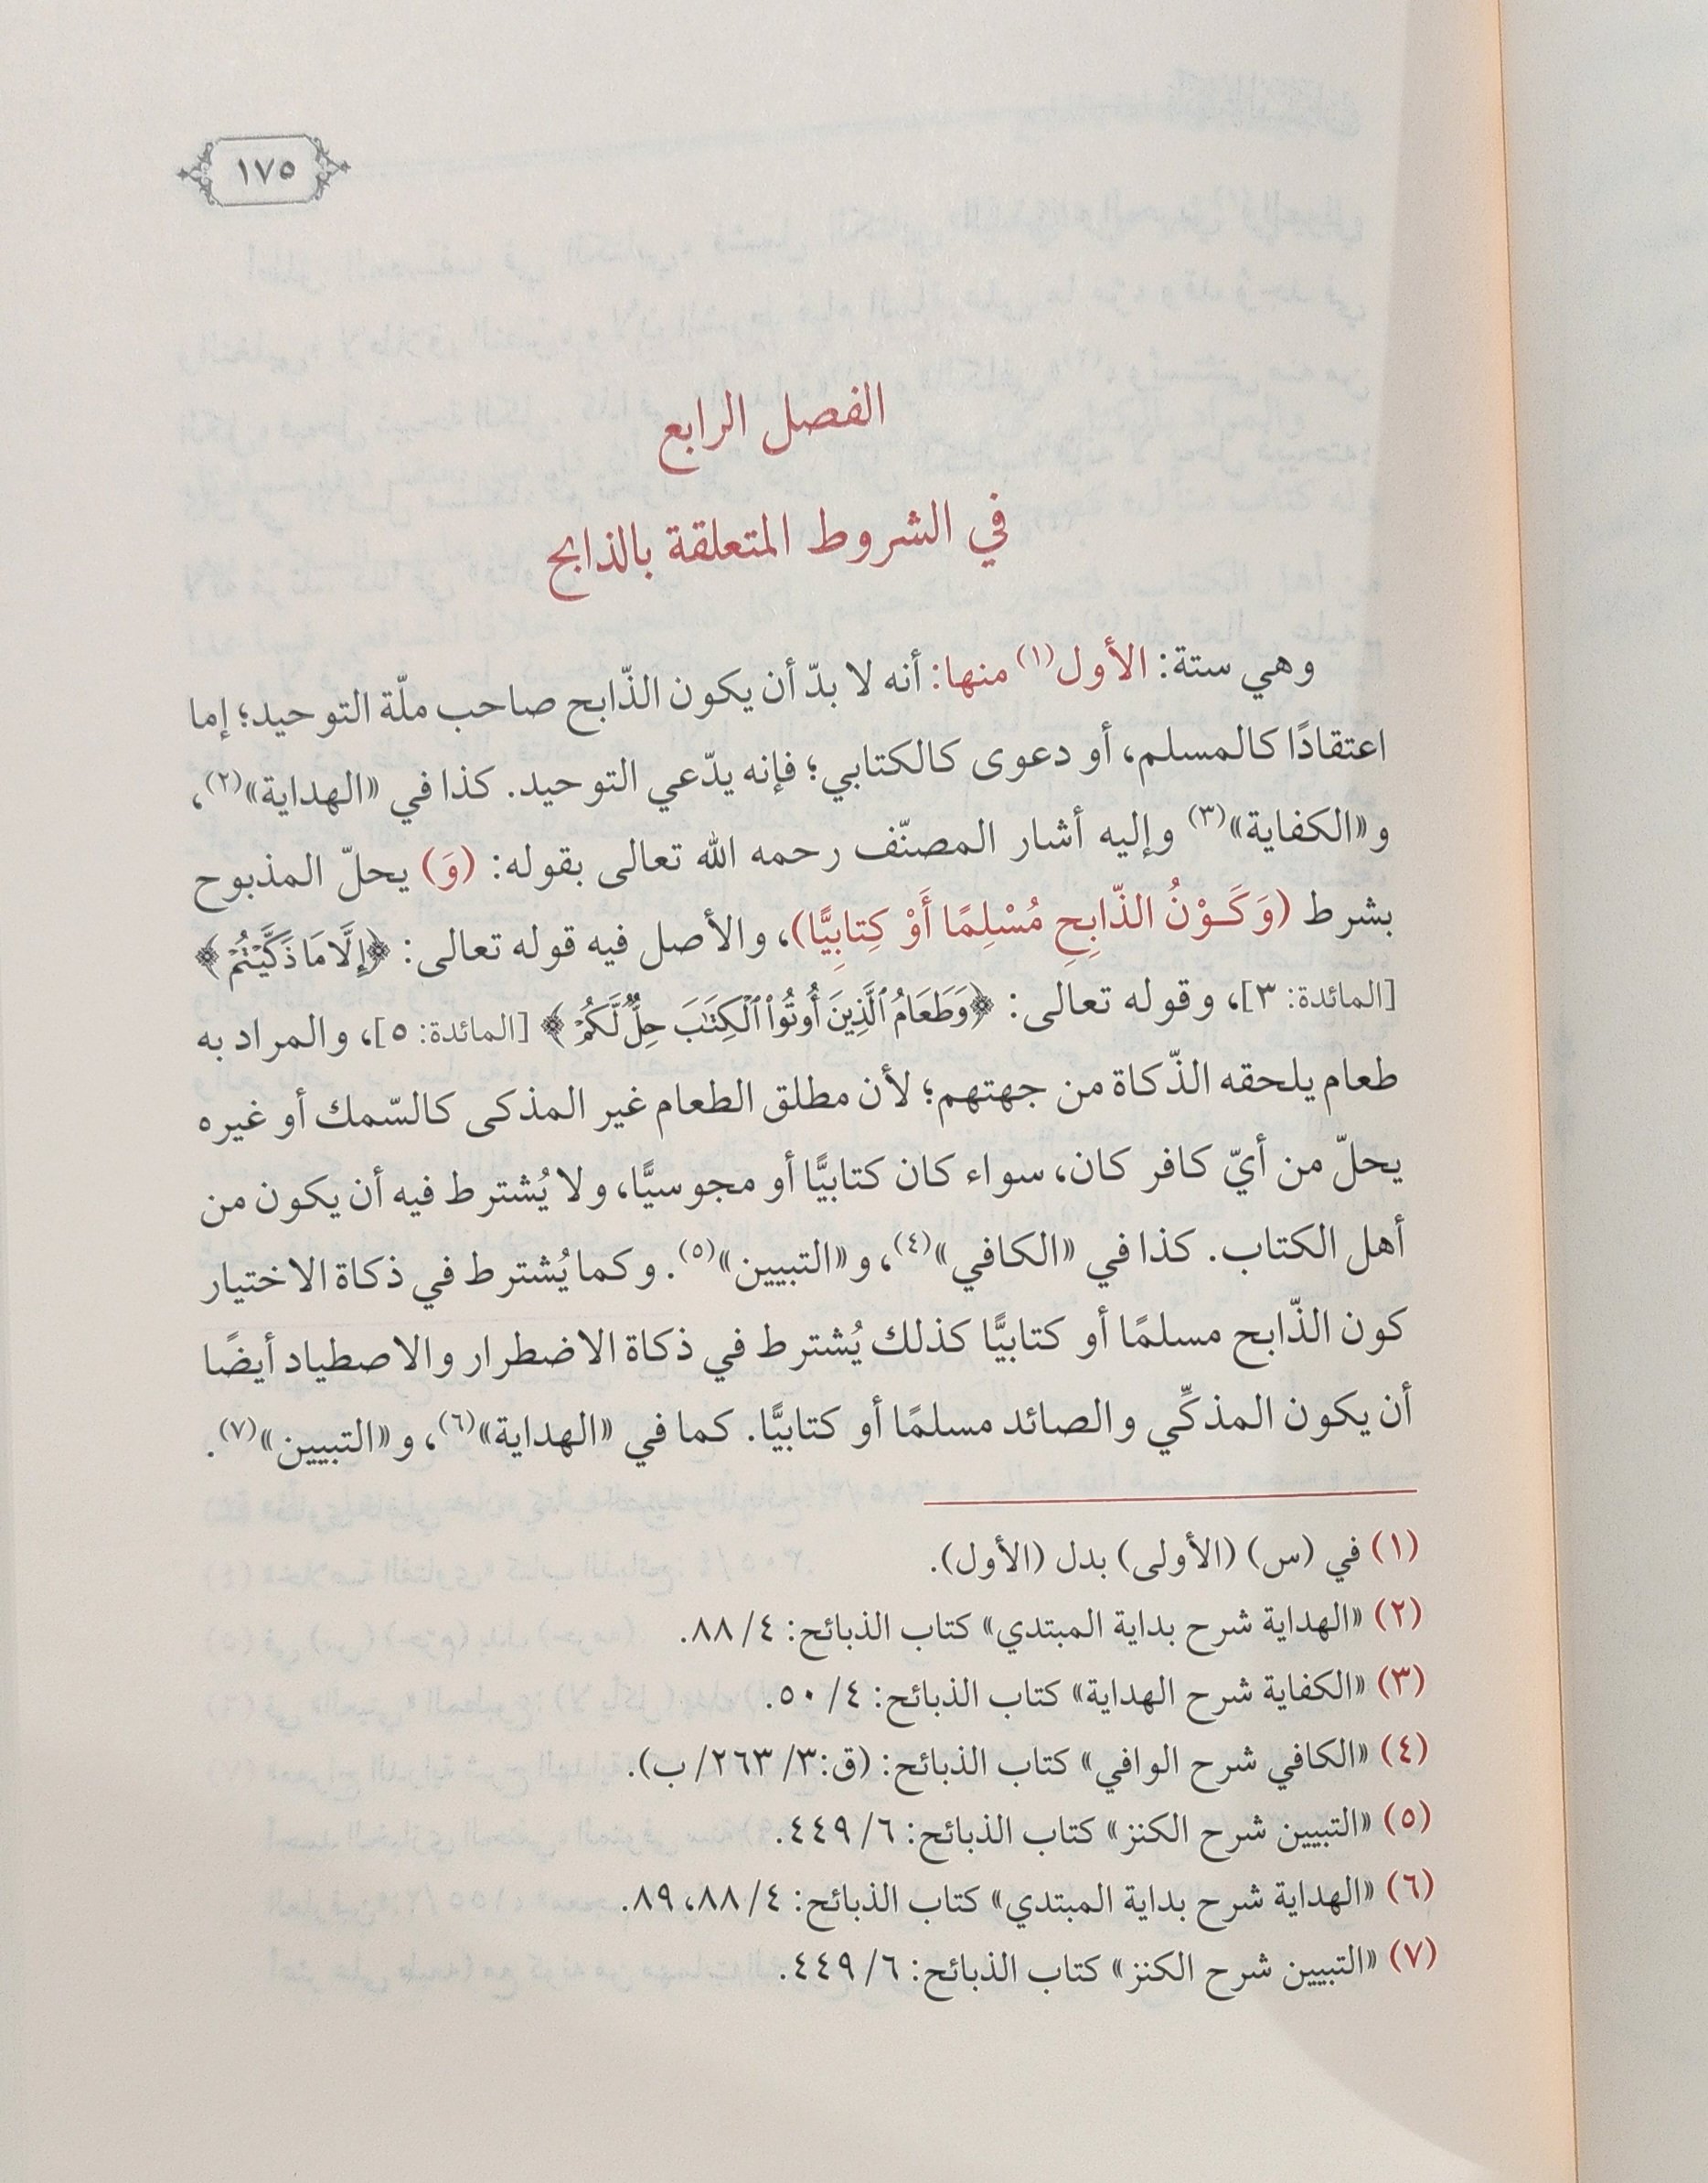 ١٧٥
الفصل الرابع
في الشروط المتعلقة بالذابح
وهي ستة: الأول(١) منها: أنه لا بدّ أن يكون الذّابح صاحب ملّة التوحيد؛ إما
اعتقادًا كالمسلم، أو دعوى كالكتابي؛ فإنه يدّعي التوحيد. كذا في «الهداية»(٢)،
و«الكفاية»(٣) وإليه أشار المصنّف رحمه الله تعالى بقوله: (وَ) يحلّ المذبوح
بشرط (وَكَوْنُ الذّابِحِ مُسْلِمًا أَوْ كِتابِيًّا)، والأصل فيه قوله تعالى: ﴿إِلَّا مَا ذَكَّيْتُمْ﴾
[المائدة: ٣]، وقوله تعالى: ﴿وَطَعَامُ ٱلَّذِينَ أُوتُوا۟ ٱلْكِتَٰبَ حِلٌّ لَّكُمْ﴾ [المائدة: ٥]، والمراد به
طعام يلحقه الذّكاة من جهتهم؛ لأن مطلق الطعام غير المذكى كالسّمك أو غيره
يحلّ من أيّ كافر كان، سواء كان كتابيًّا أو مجوسيًّا، ولا يُشترط فيه أن يكون من
أهل الكتاب. كذا في «الكافي»(٤)، و«التبيين»(٥). وكما يُشترط في ذكاة الاختيار
كون الذّابح مسلمًا أو كتابيًّا كذلك يُشترط في ذكاة الاضطرار والاصطياد أيضًا
أن يكون المذكِّي والصائد مسلمًا أو كتابيًّا. كما في «الهداية»(٦)، و«التبيين»(٧).
(١) في (س) (الأولى) بدل (الأول).
(٢) «الهداية شرح بداية المبتدي» كتاب الذبائح: ٤/ ٨٨.
(٣) «الكفاية شرح الهداية» كتاب الذبائح: ٤/ ٥٠.
(٤) «الكافي شرح الوافي» كتاب الذبائح: (ق:٣/ ٢٦٣/ ب).
(٥) «التبيين شرح الكنز» كتاب الذبائح: ٦/ ٤٤٩.
(٦) «الهداية شرح بداية المبتدي» كتاب الذبائح: ٤/ ٨٨، ٨٩.
(٧) «التبيين شرح الكنز» كتاب الذبائح: ٦/ ٤٤٩.